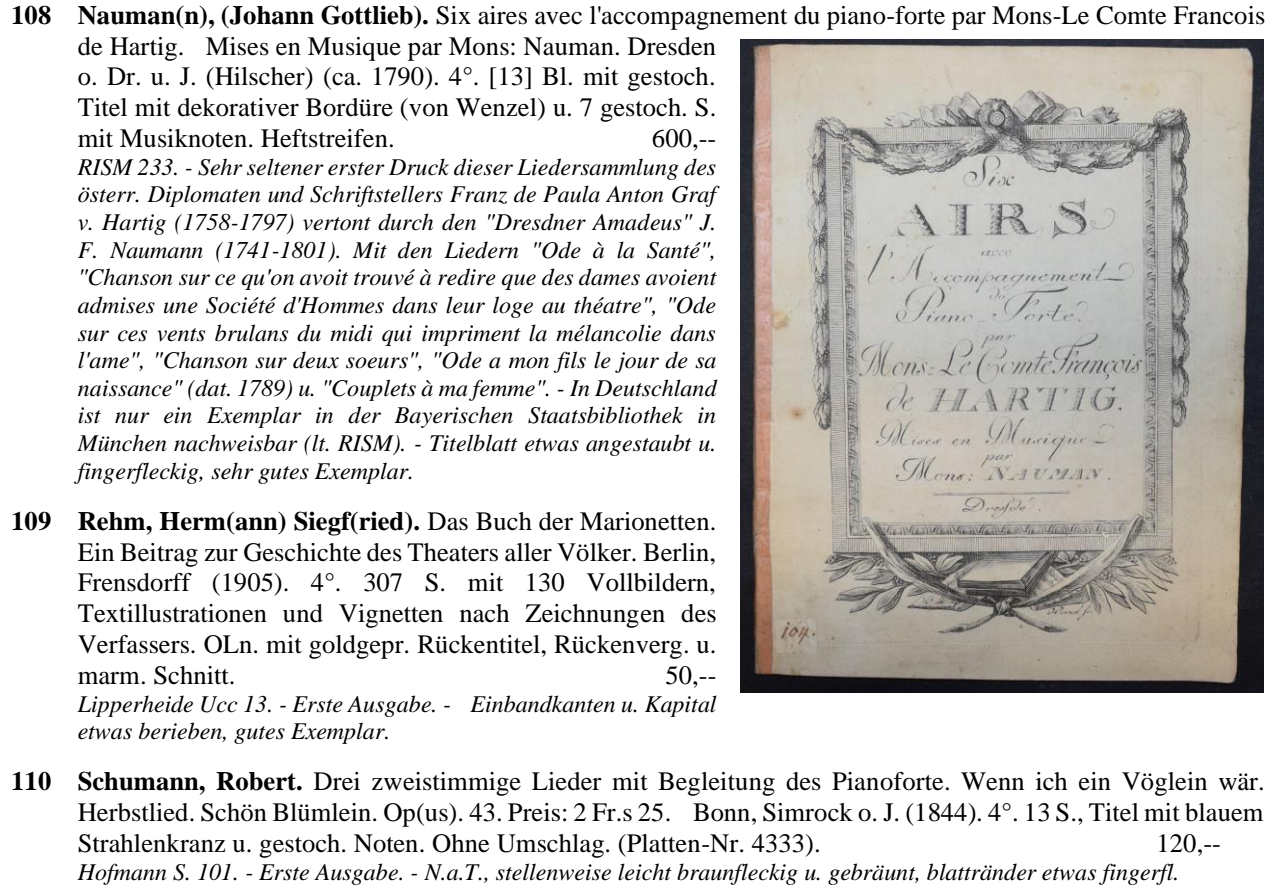 108 Nauman(n), (Johann Gottlieb). Six aires avec l'accompagnement du piano-forte par Mons-Le Comte Francois
de Hartig. Mises en Musique par Mons: Nauman. Dresden
o. Dr. u. J. (Hilscher) (ca. 1790). 4°. [13] Bl. mit gestoch.
Titel mit dekorativer Bordüre (von Wenzel) u. 7 gestoch. S.
mit Musiknoten. Heftstreifen. 600,--
RISM 233. - Sehr seltener erster Druck dieser Liedersammlung des
österr. Diplomaten und Schriftstellers Franz de Paula Anton Graf
v. Hartig (1758-1797) vertont durch den "Dresdner Amadeus" J.
F. Naumann (1741-1801). Mit den Liedern "Ode à la Santé",
"Chanson sur ce qu'on avoit trouvé à redire que des dames avoient
admises une Société d'Hommes dans leur loge au théatre", "Ode
sur ces vents brulans du midi qui impriment la mélancolie dans
l'ame", "Chanson sur deux soeurs", "Ode a mon fils le jour de sa
naissance" (dat. 1789) u. "Couplets à ma femme". - In Deutschland
ist nur ein Exemplar in der Bayerischen Staatsbibliothek in
München nachweisbar (lt. RISM). - Titelblatt etwas angestaubt u.
fingerfleckig, sehr gutes Exemplar.
Six
AIRS
avec
l'Accompagnement
du
Piano-Forte
par
Mons: Le Comte François
de HARTIG.
Mises en Musique
par
Mons: NAUMAN.
Dresde.
104.
109 Rehm, Herm(ann) Siegf(ried). Das Buch der Marionetten.
Ein Beitrag zur Geschichte des Theaters aller Völker. Berlin,
Frensdorff (1905). 4°. 307 S. mit 130 Vollbildern,
Textillustrationen und Vignetten nach Zeichnungen des
Verfassers. OLn. mit goldgepr. Rückentitel, Rückenverg. u.
marm. Schnitt. 50,--
Lipperheide Ucc 13. - Erste Ausgabe. - Einbandkanten u. Kapital
etwas berieben, gutes Exemplar.
110 Schumann, Robert. Drei zweistimmige Lieder mit Begleitung des Pianoforte. Wenn ich ein Vöglein wär.
Herbstlied. Schön Blümlein. Op(us). 43. Preis: 2 Fr.s 25. Bonn, Simrock o. J. (1844). 4°. 13 S., Titel mit blauem
Strahlenkranz u. gestoch. Noten. Ohne Umschlag. (Platten-Nr. 4333). 120,--
Hofmann S. 101. - Erste Ausgabe. - N.a.T., stellenweise leicht braunfleckig u. gebräunt, blattränder etwas fingerfl.